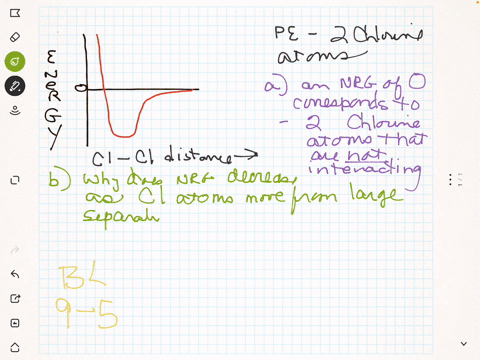 PE - 2 Chlorine
atoms
ENERGY
0
Cl - Cl distance →
a) an NRG of 0
corresponds to
- 2 Chlorine
atoms that
are not
interacting
b) Why does NRG decreas
as Cl atoms move from large
separati
BL
9-5